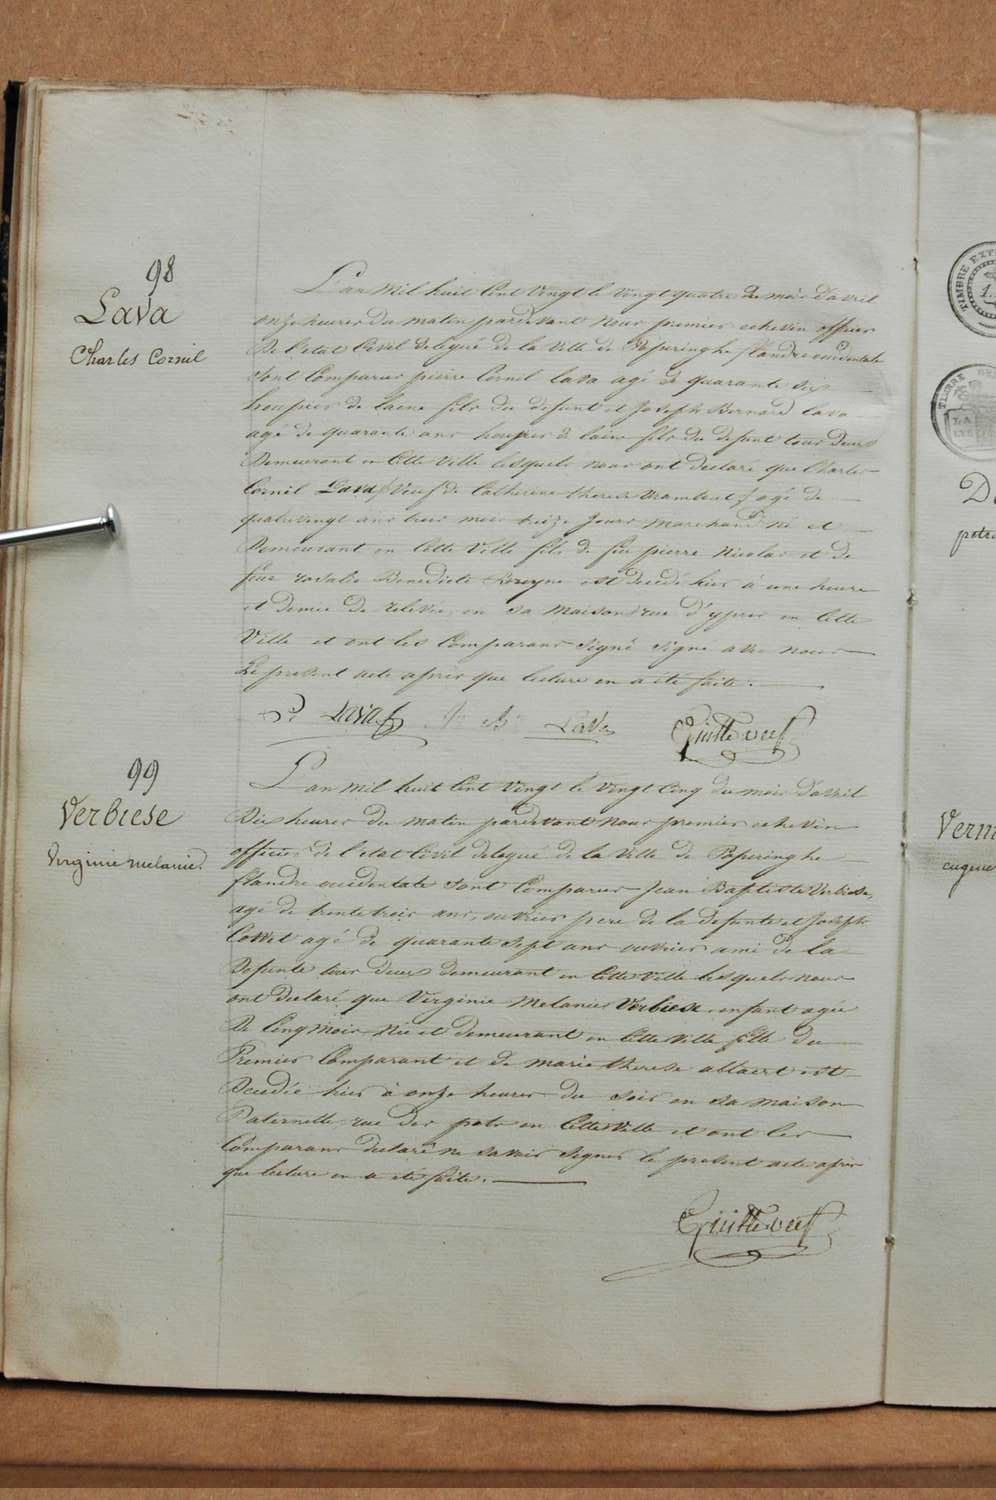 98
Lava
Charles Cornil
L'an mil huit Cent Vingt le vingt quatre du mois D'avril
onze heures du matin pardevant Nous premier echevin officier
De l'etat Civil delegué de la Ville de Poperinghe flandre occidentale
Sont Comparus pierre Cornil Lava agé de quarante six
houpier de laine fils du defunt et Joseph Bernard Lava
agé de quarante ans houpier de laine fils du defunt tous Deux
Demeurant en Cette Ville lesquels nous ont declaré que Charles
Cornil Lava Veuf de Catherine therese agé de
quatrevingt ans trois mois treize Jours marchand né et
Demeurant en Cette Ville fils de feu pierre Nicolas et de
feue rosalie Benedicte est decedé hier à une heure
et demie de relevée, en sa maison rue d'ypres en Cette
Ville et ont les Comparans signé signe avec nous
Le present acte apres que lecture en a eté faite.
P. C. Lava J. B. Lava
99
Verbiese
Virginie melanie.
L'an mil huit Cent Vingt le vingt Cinq du mois D'avril
Dix heures du matin pardevant Nous premier echevin
officier de l'etat Civil delegué de la Ville de Poperinghe
flandre occidentale Sont Comparus Jean Baptiste Verbiese,
agé de trente trois ans, ouvrier pere de la defunte et Joseph
agé de quarante sept ans ouvrier ami de la
Defunte tous deux demeurant en Cette Ville lesquels nous
ont declaré que Virginie Melanie Verbiese enfant agée
De Cinq mois Née et demeurant en Cette Ville fille du
Premier Comparant et de marie therese allaert est
Decedée hier à onze heures du soir en sa maison
Paternelle rue des pots en Cette Ville et ont les
Comparans declaré ne savoir signer le present acte apres
que lecture en a eté faite.